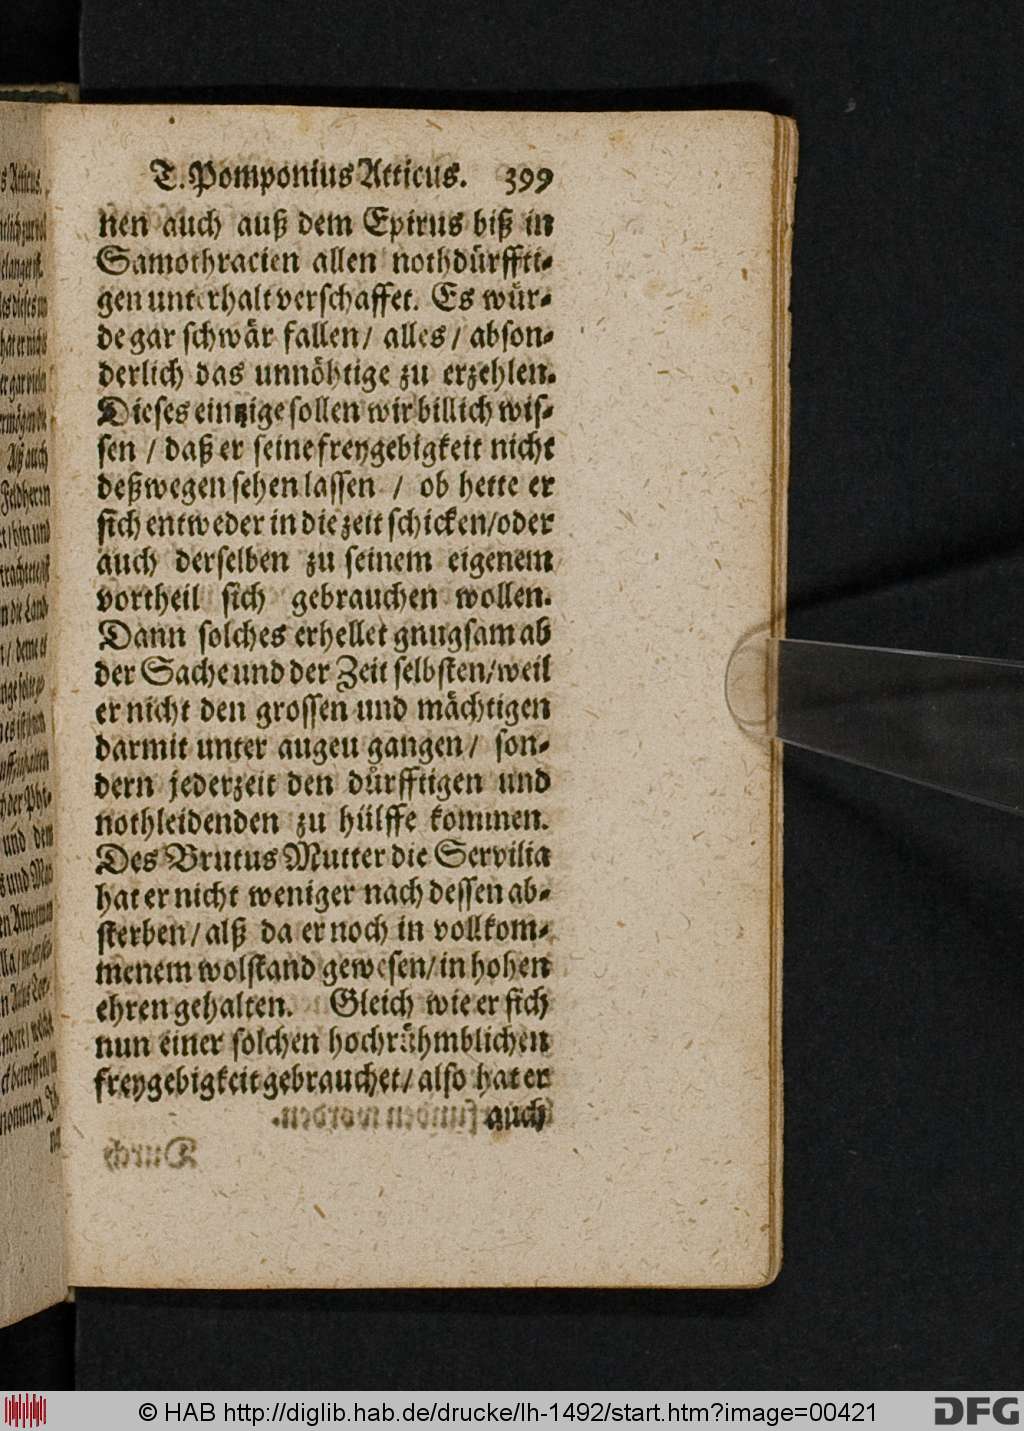 T. Pomponius Atticus. 399
nen auch auß dem Epirus biß in
Samothracien allen nothdürffti-
gen unterhalt verschaffet. Es wür-
de gar schwär fallen / alles / abson-
derlich das unnöhtige zu erzehlen.
Dieses eintzige sollen wir billich wis-
sen / daß er seine freygebigkeit nicht
deßwegen sehen lassen / ob hette er
sich entweder in die zeit schicken / oder
auch derselben zu seinem eigenem
vortheil sich gebrauchen wollen.
Dann solches erhellet gnugsam ab
der Sache und der Zeit selbsten / weil
er nicht den grossen und mächtigen
darmit unter augeu gangen / son-
dern jederzeit den dürfftigen und
nothleidenden zu hülffe kommen.
Des Brutus Mutter die Servilia
hat er nicht weniger nach dessen ab-
sterben / alß da er noch in vollkom-
menem wolstand gewesen / in hohen
ehren gehalten. Gleich wie er sich
nun einer solchen hochrühmblichen
freygebigkeit gebrauchet / also hat er
auch
© HAB http://diglib.hab.de/drucke/lh-1492/start.htm?image=00421
DFG